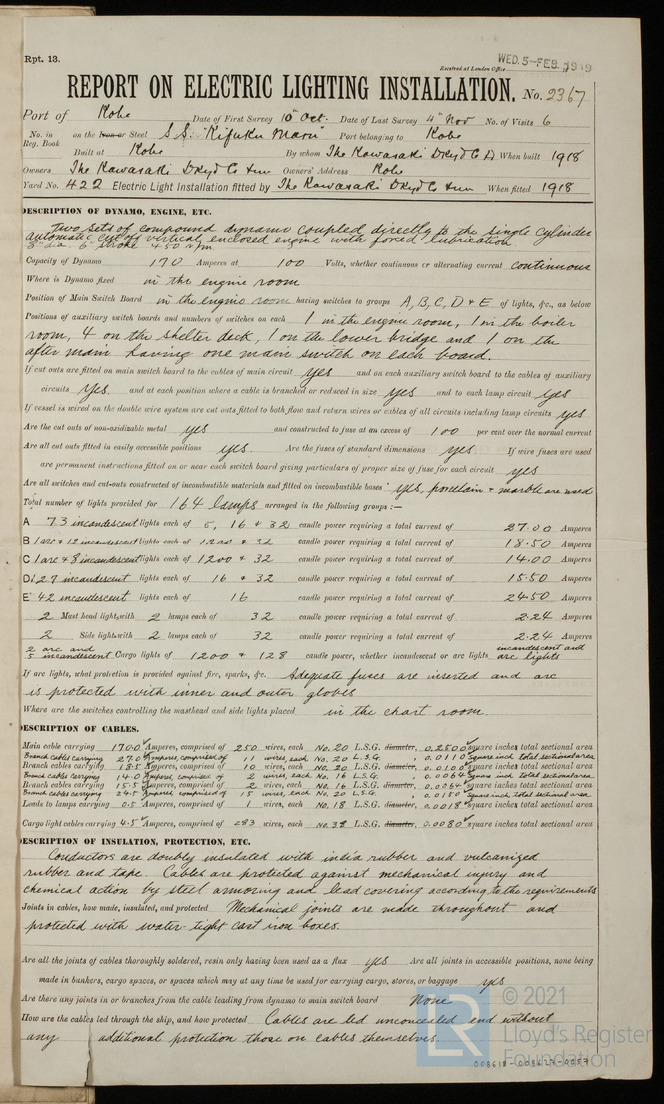 Rpt. 13.
WED. 5-FEB. 1919
Received at London Office
REPORT ON ELECTRIC LIGHTING INSTALLATION. No. 2367
Port of Kobe Date of First Survey 10th Oct. Date of Last Survey 4th Nov No. of Visits 6
No. in Reg. Book on the Iron or Steel S.S. "Kifuku Maru" Port belonging to Kobe
Built at Kobe By whom The Kawasaki Dkyd Co Ld When built 1918
Owners The Kawasaki Dkyd Co Owners' Address Kobe
Yard No. 422 Electric Light Installation fitted by The Kawasaki Dkyd Co When fitted 1918
DESCRIPTION OF DYNAMO, ENGINE, ETC.
Two sets of compound dynamo coupled directly to the single cylinder
automatic cut off vertical enclosed engine with forced lubrication
dia 6" stroke 450 rpm
Capacity of Dynamo 170 Amperes at 100 Volts, whether continuous or alternating current continuous
Where is Dynamo fixed in the engine room
Position of Main Switch Board in the engine room having switches to groups A, B, C, D & E of lights, &c., as below
Positions of auxiliary switch boards and numbers of switches on each 1 in the engine room, 1 in the boiler
room, 4 on the shelter deck, 1 on the lower bridge and 1 on the
after main having one main switch on each board.
If cut outs are fitted on main switch board to the cables of main circuit yes and on each auxiliary switch board to the cables of auxiliary
circuits yes and at each position where a cable is branched or reduced in size yes and to each lamp circuit yes
If vessel is wired on the double wire system are cut outs fitted to both flow and return wires or cables of all circuits including lamp circuits yes
Are the cut outs of non-oxidizable metal yes and constructed to fuse at an excess of 100 per cent over the normal current
Are all cut outs fitted in easily accessible positions yes. Are the fuses of standard dimensions yes If wire fuses are used
are permanent instructions fitted on or near each switch board giving particulars of proper size of fuse for each circuit yes
Are all switches and cut-outs constructed of incombustible materials and fitted on incombustible bases yes, porcelain & marble are used
Total number of lights provided for 164 lamps arranged in the following groups :—
A 73 incandescent lights each of 5, 16 & 32 candle power requiring a total current of 27.00 Amperes
B 1 arc & 12 incandescent lights each of 1200 & 32 candle power requiring a total current of 18.50 Amperes
C 1 arc & 8 incandescent lights each of 1200 & 32 candle power requiring a total current of 14.00 Amperes
D 27 incandescent lights each of 16 & 32 candle power requiring a total current of 15.50 Amperes
E 42 incandescent lights each of 16 candle power requiring a total current of 24.50 Amperes
2 Mast head lights with 2 lamps each of 32 candle power requiring a total current of 2.24 Amperes
2 Side lights with 2 lamps each of 32 candle power requiring a total current of 2.24 Amperes
2 arc and 5 incandescent Cargo lights of 1200 & 128 candle power, whether incandescent or arc lights incandescent and arc lights
If arc lights, what protection is provided against fire, sparks, &c. Adequate fuses are inserted and arc
is protected with inner and outer globes
Where are the switches controlling the masthead and side lights placed in the chart room.
DESCRIPTION OF CABLES.
Main cable carrying 170.0 Amperes, comprised of 250 wires, each No. 20 L.S.G. diameter, 0.2500 square inches total sectional area
Branch cables carrying 27.0 Amperes, comprised of 11 wires, each No. 20 L.S.G. 0.0110 square inch total sectional area
Branch cables carrying 18.5 Amperes, comprised of 10 wires, each No. 20 L.S.G. diameter, 0.0100 square inches total sectional area
Branch cables carrying 14.0 Amperes, comprised of 2 wires, each No. 16 L.S.G. 0.0064 square inch total sectional area
Branch cables carrying 15.5 Amperes, comprised of 2 wires, each No. 16 L.S.G. diameter, 0.0064 square inches total sectional area
Branch cables carrying 24.5 Amperes, comprised of 15 wires, each No. 20 L.S.G. 0.0150 square inch total sectional area
Leads to lamps carrying 0.5 Amperes, comprised of 1 wires, each No. 18 L.S.G. diameter, 0.0018 square inches total sectional area
Cargo light cables carrying 4.5 Amperes, comprised of 283 wires, each No. 38 L.S.G. diameter, 0.0080 square inches total sectional area
DESCRIPTION OF INSULATION, PROTECTION, ETC.
Conductors are doubly insulated with india rubber and vulcanized
rubber and tape. Cables are protected against mechanical injury and
chemical action by steel armoring and lead covering according to the requirements
Joints in cables, how made, insulated, and protected Mechanical joints are made throughout and
protected with water-tight cast iron boxes.
Are all the joints of cables thoroughly soldered, resin only having been used as a flux yes Are all joints in accessible positions, none being
made in bunkers, cargo spaces, or spaces which may at any time be used for carrying cargo, stores, or baggage yes
Are there any joints in or branches from the cable leading from dynamo to main switch board None
How are the cables led through the ship, and how protected Cables are led unconcealed and without
any additional protection those on cables themselves.
© 2021
Lloyd's Register
Foundation
008618-008627-0057